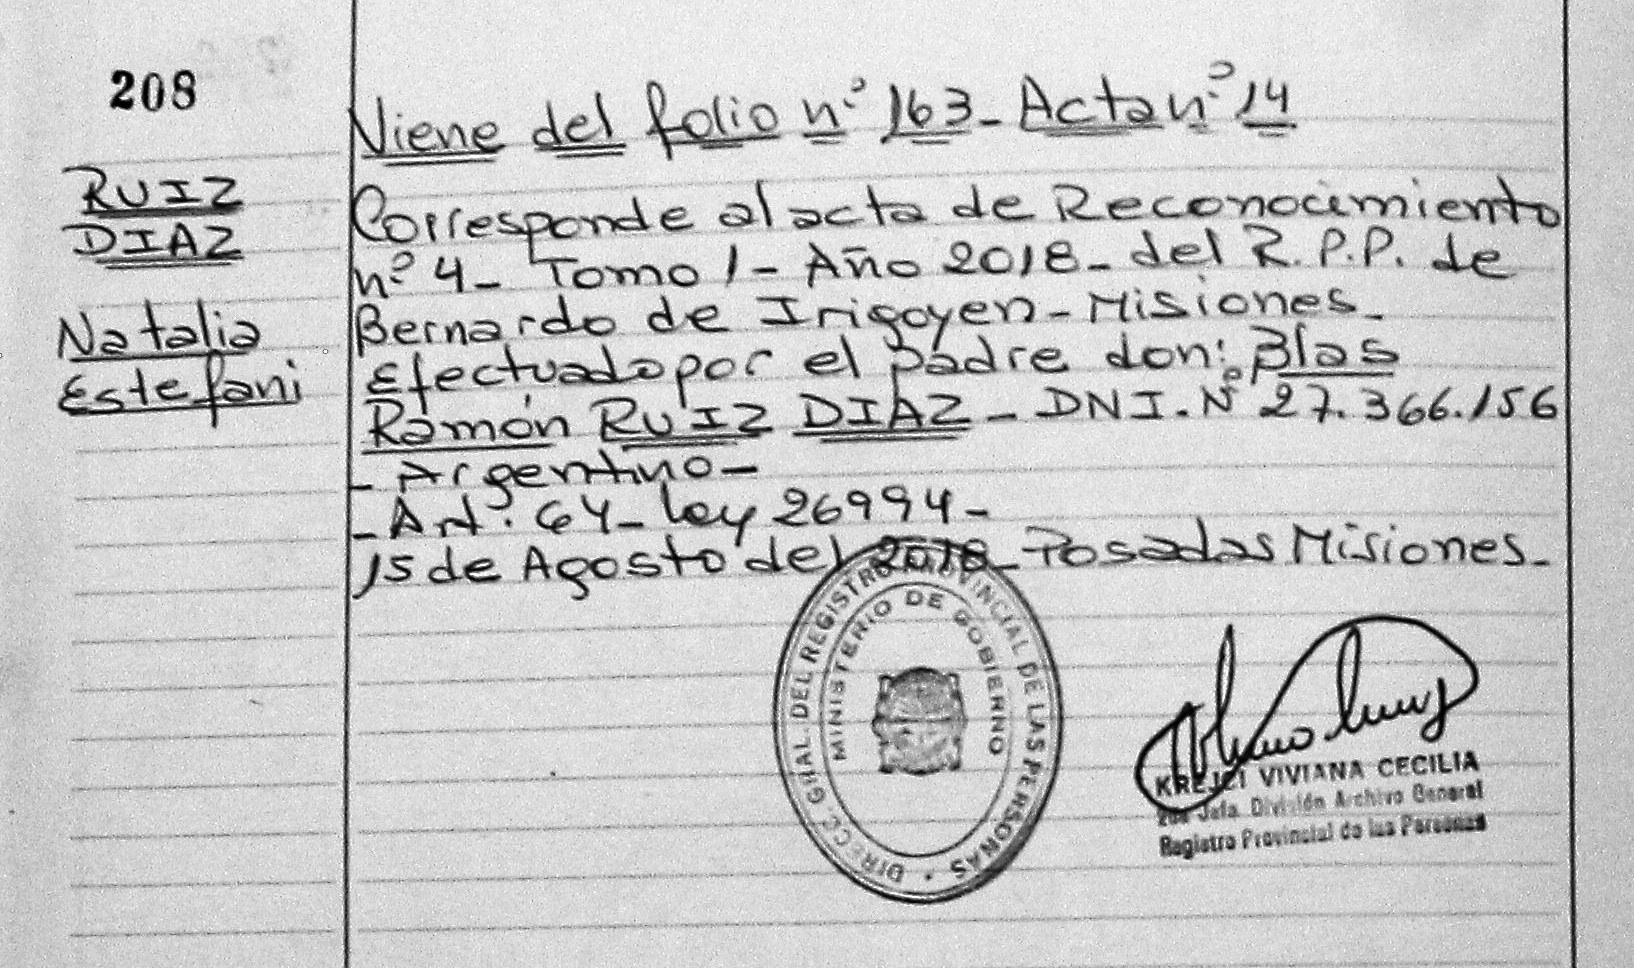 208
Viene del folio n° 163- Acta n° 14
RUIZ
DIAZ
Natalia
Estefani
Corresponde al acta de Reconocimiento
n° 4- Tomo 1- Año 2018- del R.P.P. de
Bernardo de Irigoyen-Misiones-
Efectuado por el padre don: Blas
Ramón RUIZ DIAZ- DNI. N° 27.366.156
-Argentino-
-Art°. 64- ley 26994-
15 de Agosto del 2018-Posadas Misiones-
DIRECC. GRAL. DEL REGISTRO PROVINCIAL DE LAS PERSONAS
MINISTERIO DE GOBIERNO
KREJCI VIVIANA CECILIA
Jefa. División Archivo General
Registro Provincial de las Personas